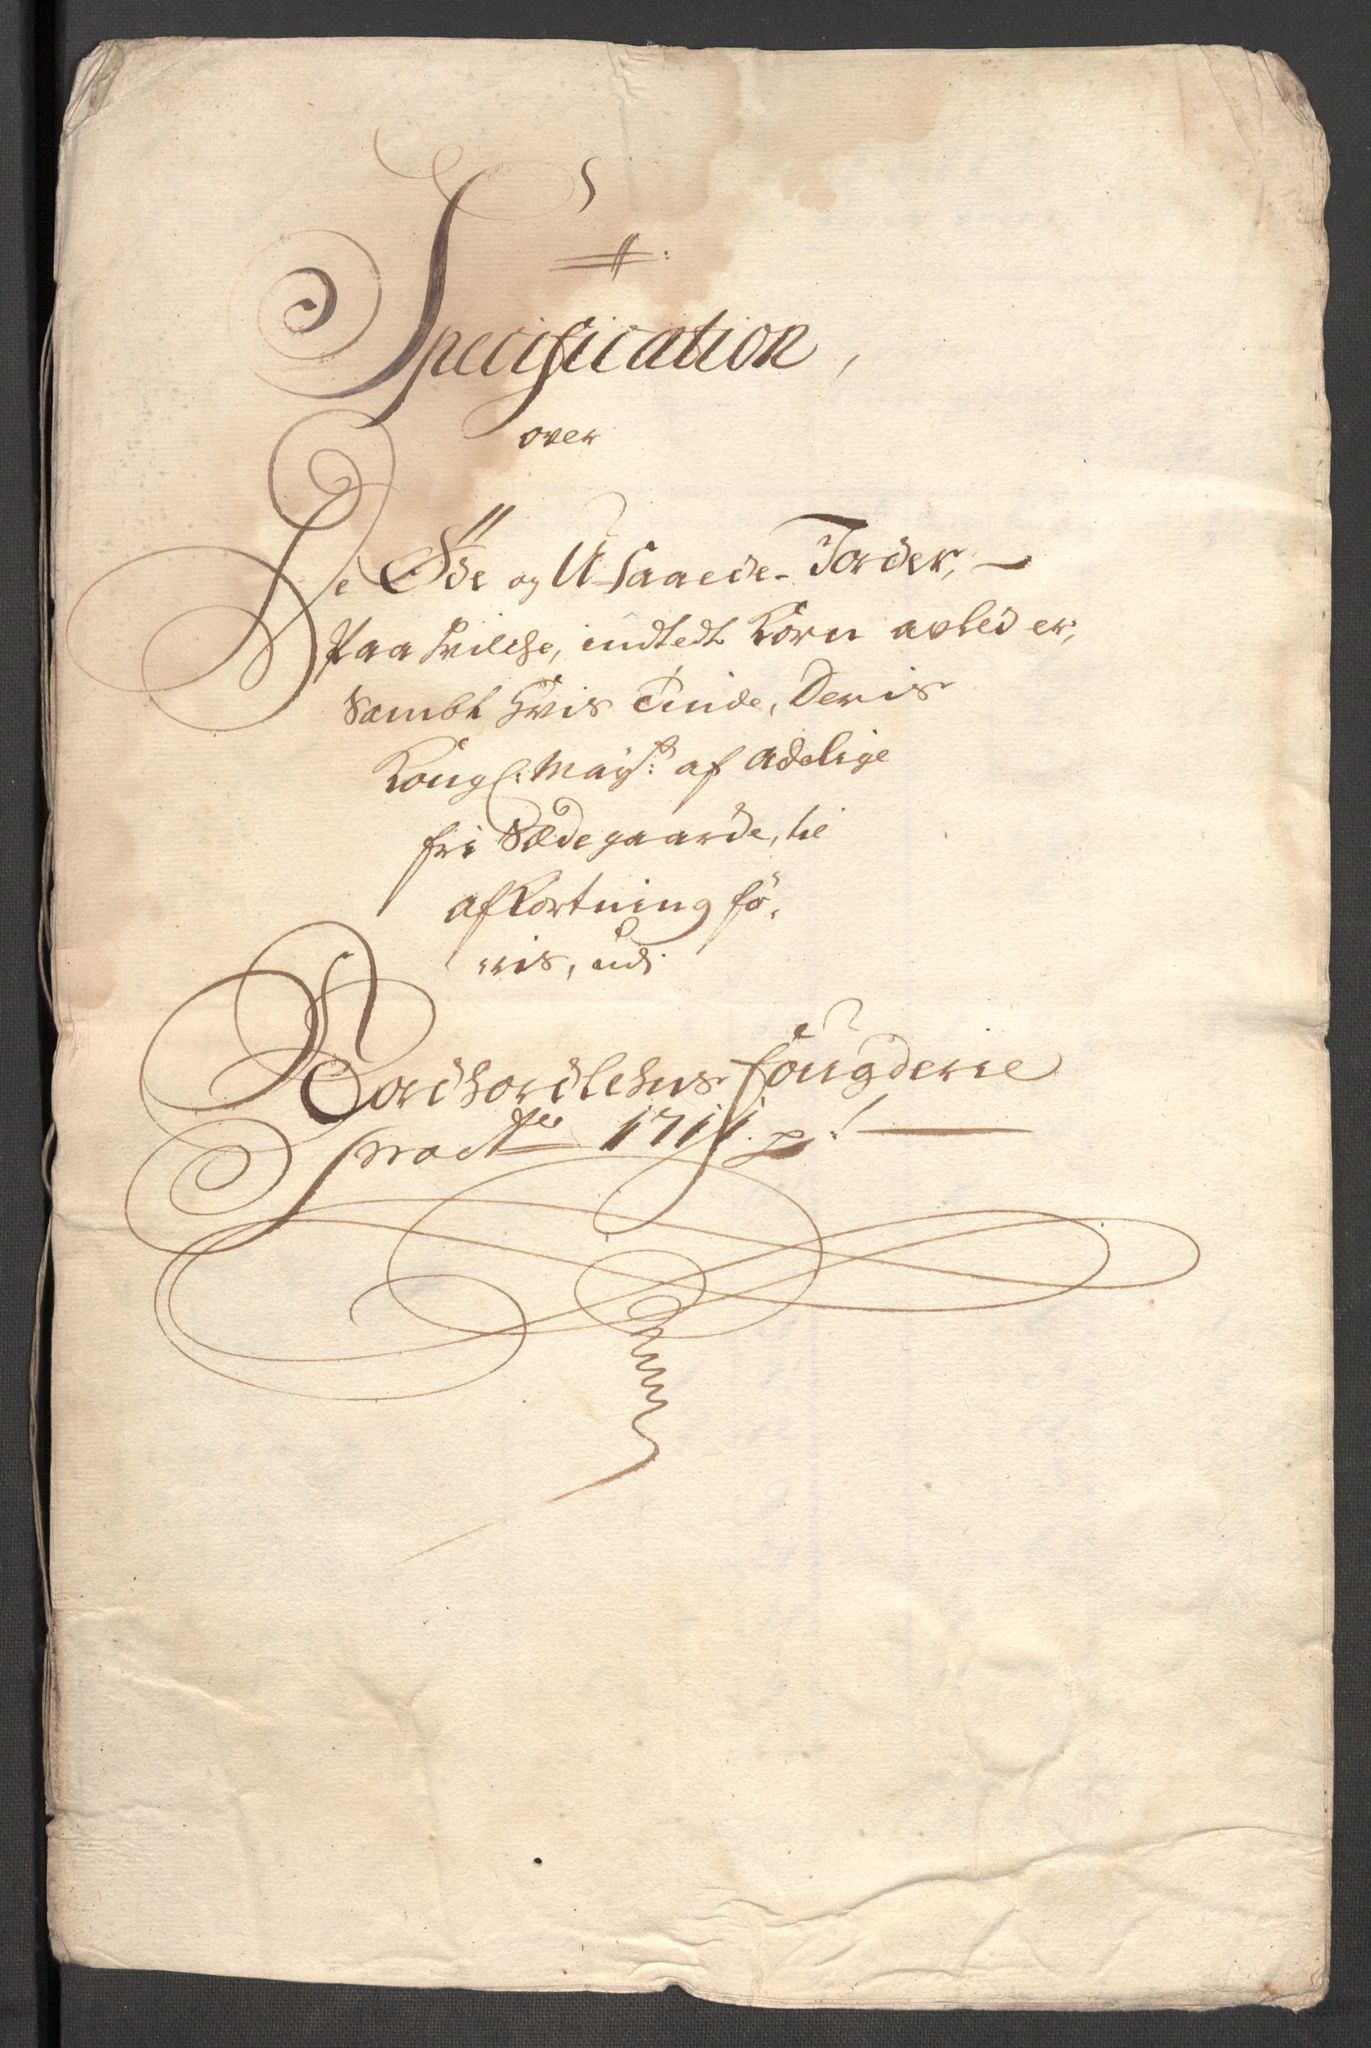 Specification,
over
De Øde og Usaaede Jorder,
Paa hvilche, indtedt Korn avled er,
Sambt hvis Tinde, Deris
Kongl: May:ts af Adelige
fri Sædegaarde, til
afkortning fø-
ris, udi
Nordhordlehns fougderie
pro 1711.